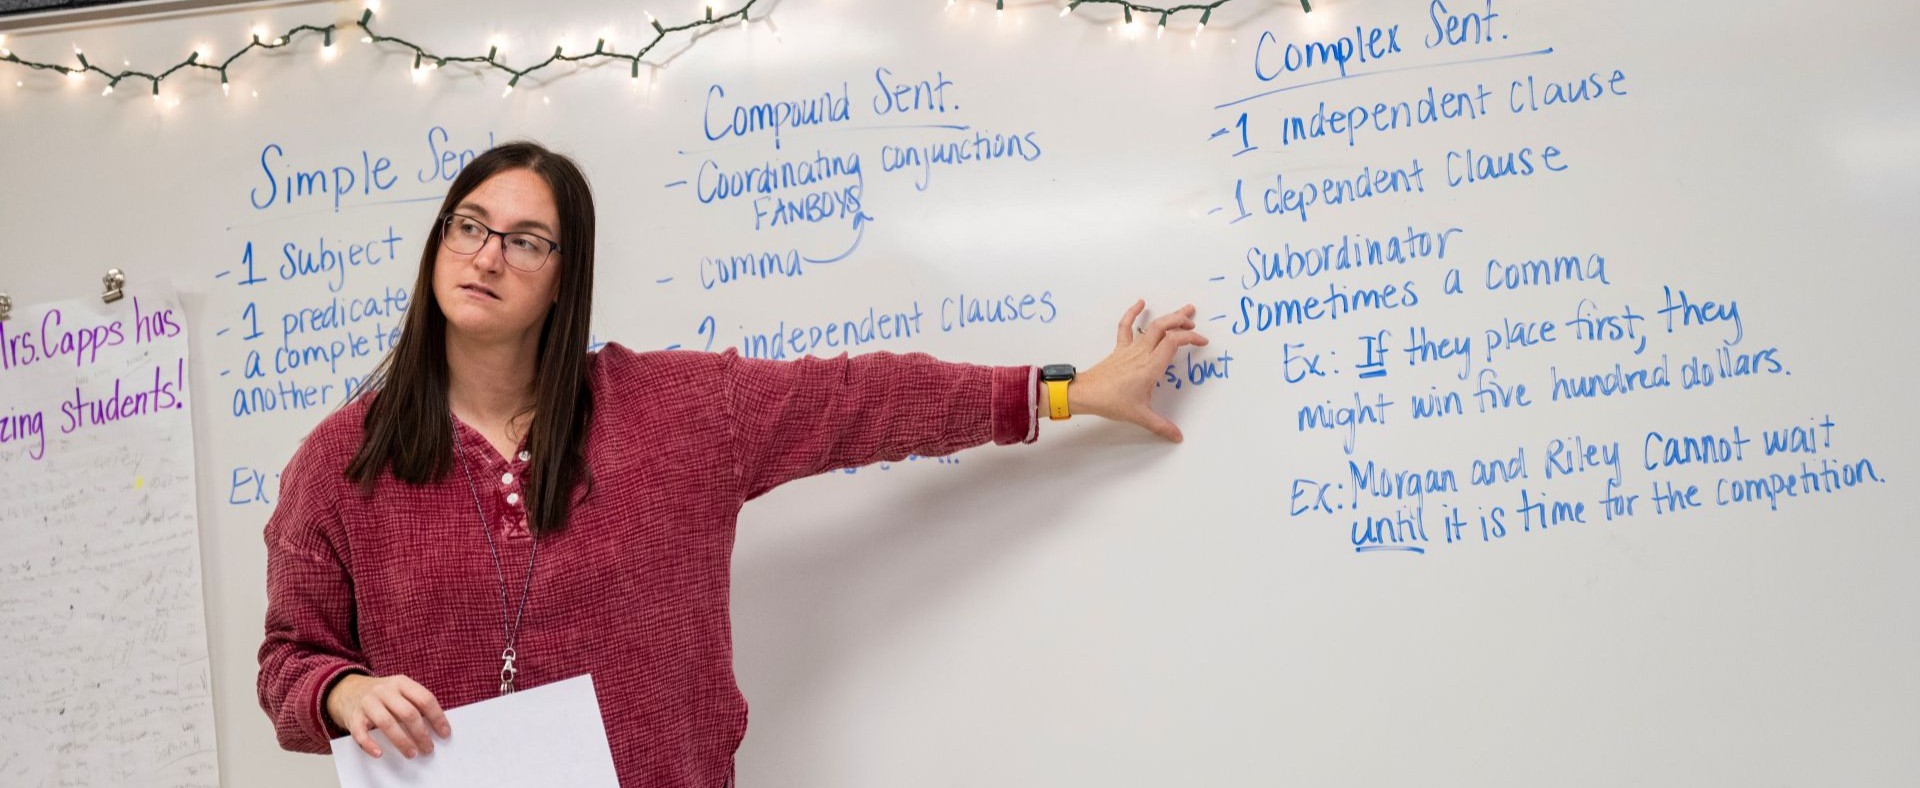 Mrs. Capps has
zing students!
Simple Sent
- 1 subject
- 1 predicate
- a complete
another
Ex:
Compound Sent.
- Coordinating conjunctions
FANBOYS
- comma
- 2 independent clauses
s, but
Complex Sent.
- 1 independent clause
- 1 dependent clause
- Subordinator
- Sometimes a comma
Ex: If they place first, they
might win five hundred dollars.
Ex: Morgan and Riley cannot wait
until it is time for the competition.